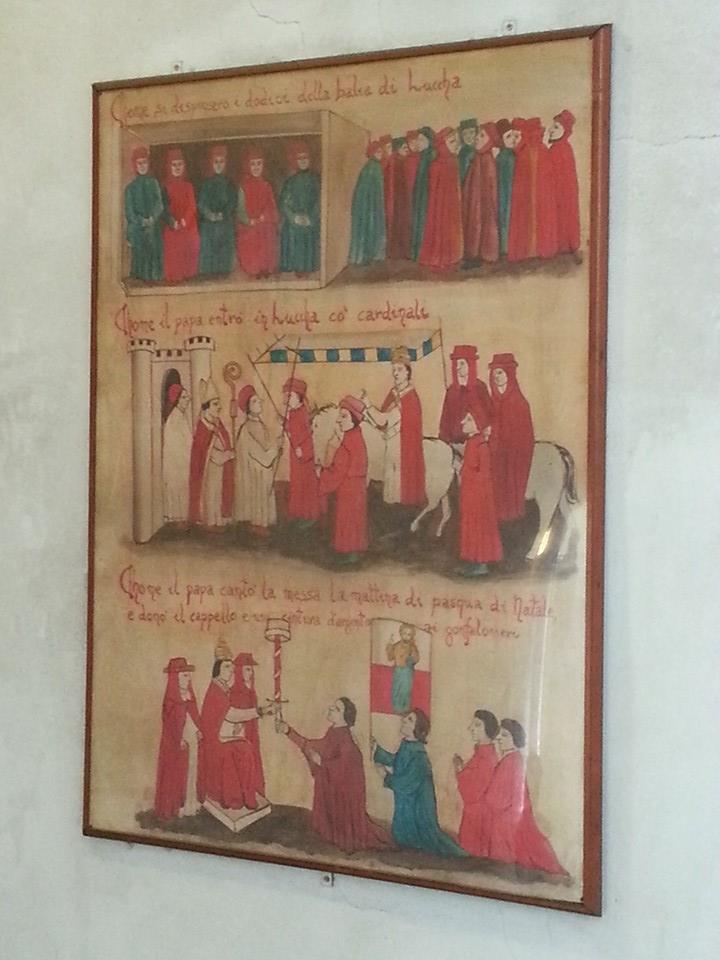 Chome si disposero i dodici della balia di Luccha
Chome il papa entro' in Luccha co' cardinali
Chome il papa canto' la messa la mattina di pasqua di Natale
e dono' il cappello e una cintura d'argento ai gonfalonieri